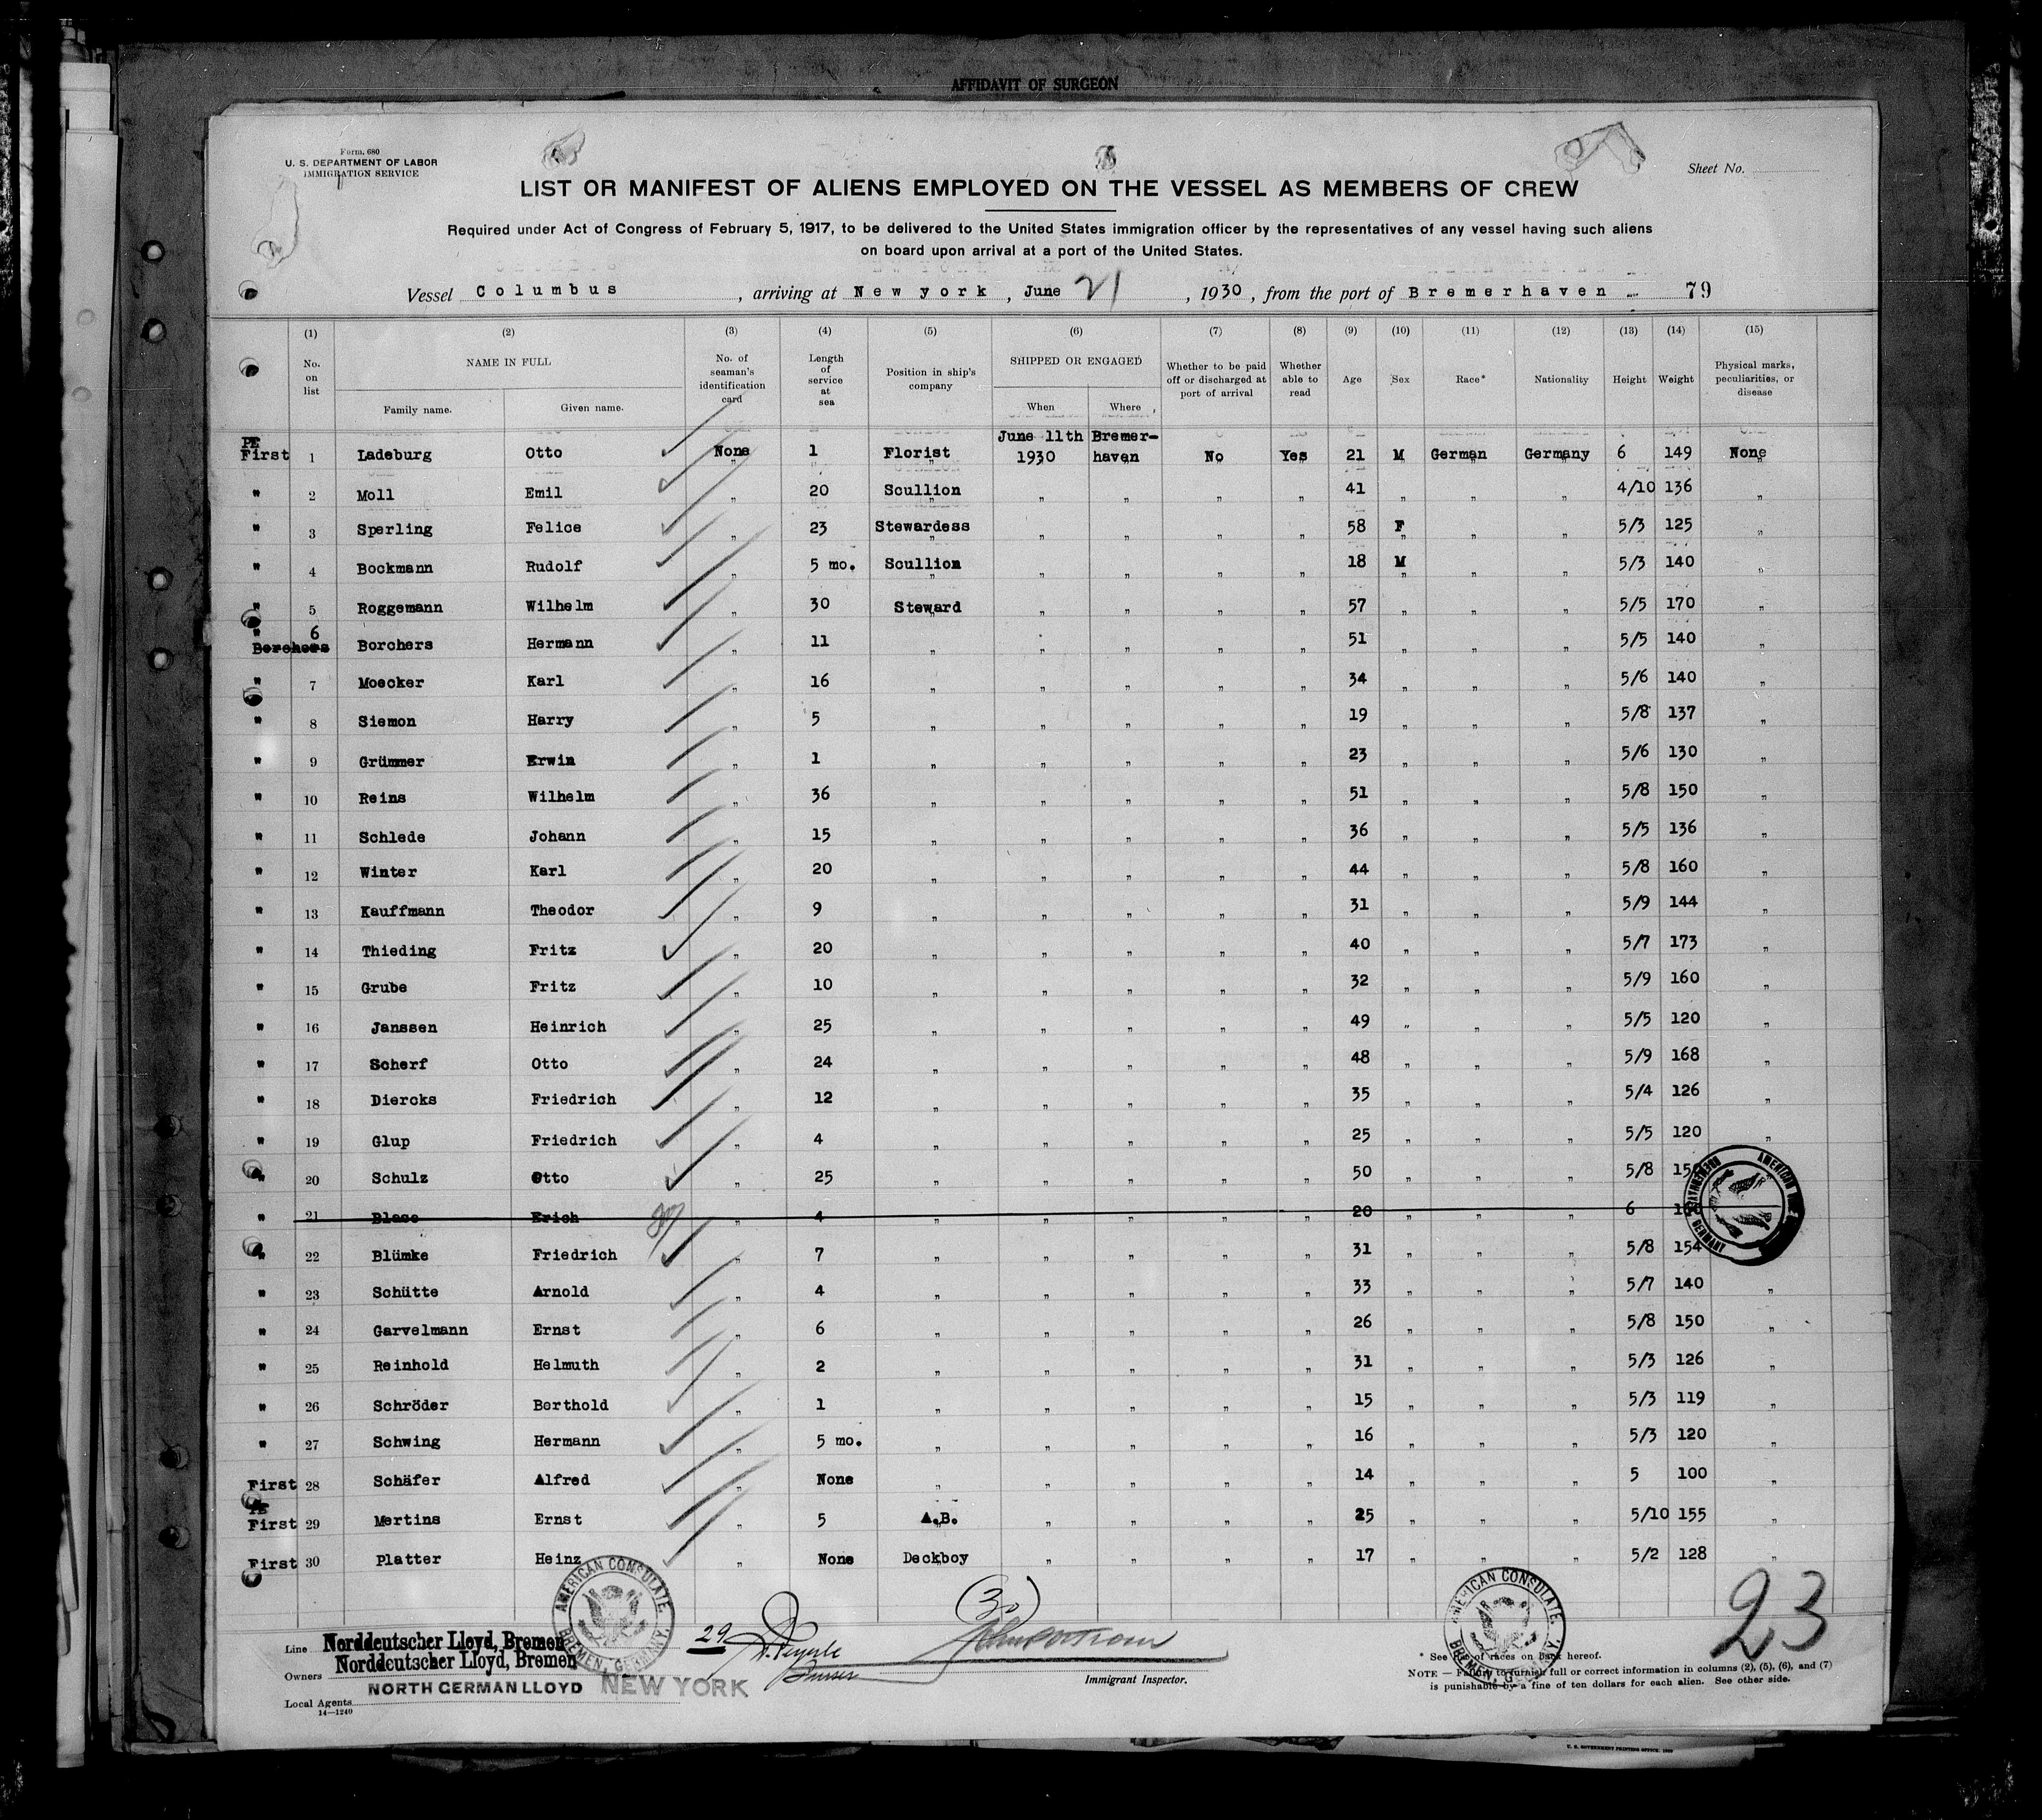 AFFIDAVIT OF SURGEON
Form 680
U. S. DEPARTMENT OF LABOR
IMMIGRATION SERVICE
Sheet No.
LIST OR MANIFEST OF ALIENS EMPLOYED ON THE VESSEL AS MEMBERS OF CREW
Required under Act of Congress of February 5, 1917, to be delivered to the United States immigration officer by the representatives of any vessel having such aliens
on board upon arrival at a port of the United States.
Vessel Columbus, arriving at New york, June 21, 1930, from the port of Bremerhaven 79
(1) (2) (3) (4) (5) (6) (7) (8) (9) (10) (11) (12) (13) (14) (15)
No. on list NAME IN FULL Family name. Given name. No. of seaman's identification card Length of service at sea Position in ship's company SHIPPED OR ENGAGED When Where Whether to be paid off or discharged at port of arrival Whether able to read Age Sex Race* Nationality Height Weight Physical marks, peculiarities, or disease
PE First 1 Ladeburg Otto None 1 Florist June 11th 1930 Bremer-haven No Yes 21 M German Germany 6 149 None
" 2 Moll Emil " 20 Scullion " " " " 41 " " " 4/10 136 "
" 3 Sperling Felice " 23 Stewardess " " " " 58 F " " 5/3 125 "
" 4 Bockmann Rudolf " 5 mo. Scullion " " " " 18 M " " 5/3 140 "
" 5 Roggemann Wilhelm " 30 Steward " " " " 57 " " " 5/5 170 "
" Borchers 6 Borchers Hermann " 11 " " " " " 51 " " " 5/5 140 "
" 7 Moecker Karl " 16 " " " " " 34 " " " 5/6 140 "
" 8 Siemon Harry " 5 " " " " " 19 " " " 5/8 137 "
" 9 Grümmer Erwin " 1 " " " " " 23 " " " 5/6 130 "
" 10 Reins Wilhelm " 36 " " " " " 51 " " " 5/8 150 "
" 11 Schlede Johann " 15 " " " " " 36 " " " 5/5 136 "
" 12 Winter Karl " 20 " " " " " 44 " " " 5/8 160 "
" 13 Kauffmann Theodor " 9 " " " " " 31 " " " 5/9 144 "
" 14 Thieding Fritz " 20 " " " " " 40 " " " 5/7 173 "
" 15 Grube Fritz " 10 " " " " " 32 " " " 5/9 160 "
" 16 Janssen Heinrich " 25 " " " " " 49 " " " 5/5 120 "
" 17 Scherf Otto " 24 " " " " " 48 " " " 5/9 168 "
" 18 Diercks Friedrich " 12 " " " " " 35 " " " 5/4 126 "
" 19 Glup Friedrich " 4 " " " " " 25 " " " 5/5 120 "
" 20 Schulz Otto " 25 " " " " " 50 " " " 5/8
" 21 Blase Erich " 4 " " " " " 20 " " " 6
" 22 Blümke Friedrich " 7 " " " " " 31 " " " 5/8 154
" 23 Schütte Arnold " 4 " " " " " 33 " " " 5/7 140 "
" 24 Garvelmann Ernst " 6 " " " " " 26 " " " 5/8 150 "
" 25 Reinhold Helmuth " 2 " " " " " 31 " " " 5/3 126 "
" 26 Schröder Berthold " 1 " " " " " 15 " " " 5/3 119 "
" 27 Schwing Hermann " 5 mo. " " " " " 16 " " " 5/3 120 "
First 28 Schäfer Alfred " None " " " " " 14 " " " 5 100 "
PE First 29 Mertins Ernst " 5 A.B. " " " " 25 " " " 5/10 155 "
First 30 Platter Heinz " None Deckboy " " " " 17 " " " 5/2 128 "
AMERICAN CONSULATE BREMEN, GERMANY
AMERICAN CONSULATE BREMEN, GERMANY
(30)
23
29
Purser
Line Norddeutscher Lloyd, Bremen
Owners Norddeutscher Lloyd, Bremen
Local Agents NORTH GERMAN LLOYD NEW YORK
14—1240
Immigrant Inspector.
* See list of races on back hereof.
NOTE — Failure to furnish full or correct information in columns (2), (5), (6), and (7)
is punishable by a fine of ten dollars for each alien. See other side.
U. S. GOVERNMENT PRINTING OFFICE